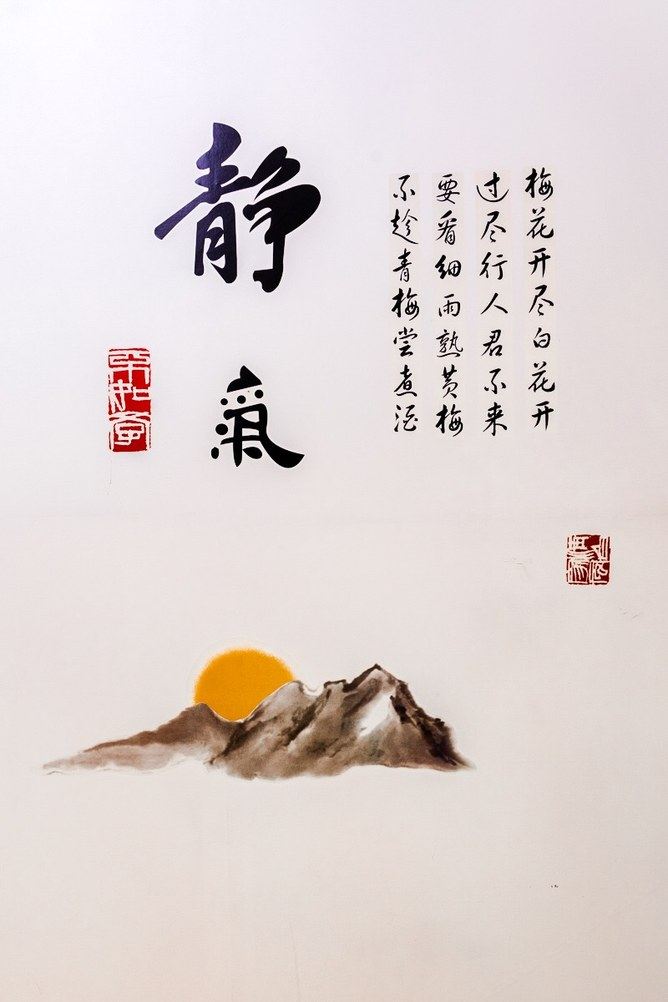 梅花开尽白花开
过尽行人君不来
要看细雨熟黄梅
不趁青梅尝煮酒
静氣